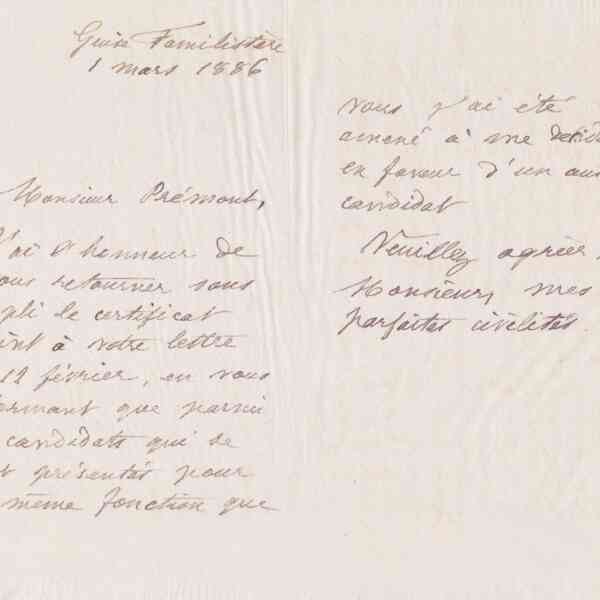 Guise Familistère
1 mars 1886
Monsieur Prémont,
J'ai l'honneur de
vous retourner sous
pli le certificat
joint à votre lettre
12 février, en vous
informant que parmi
candidats qui se
présentés pour
même fonction que
vous j'ai été
amené à me
en faveur d'un
candidat
Veuillez agréer,
Monsieur, mes
parfaites civilités.